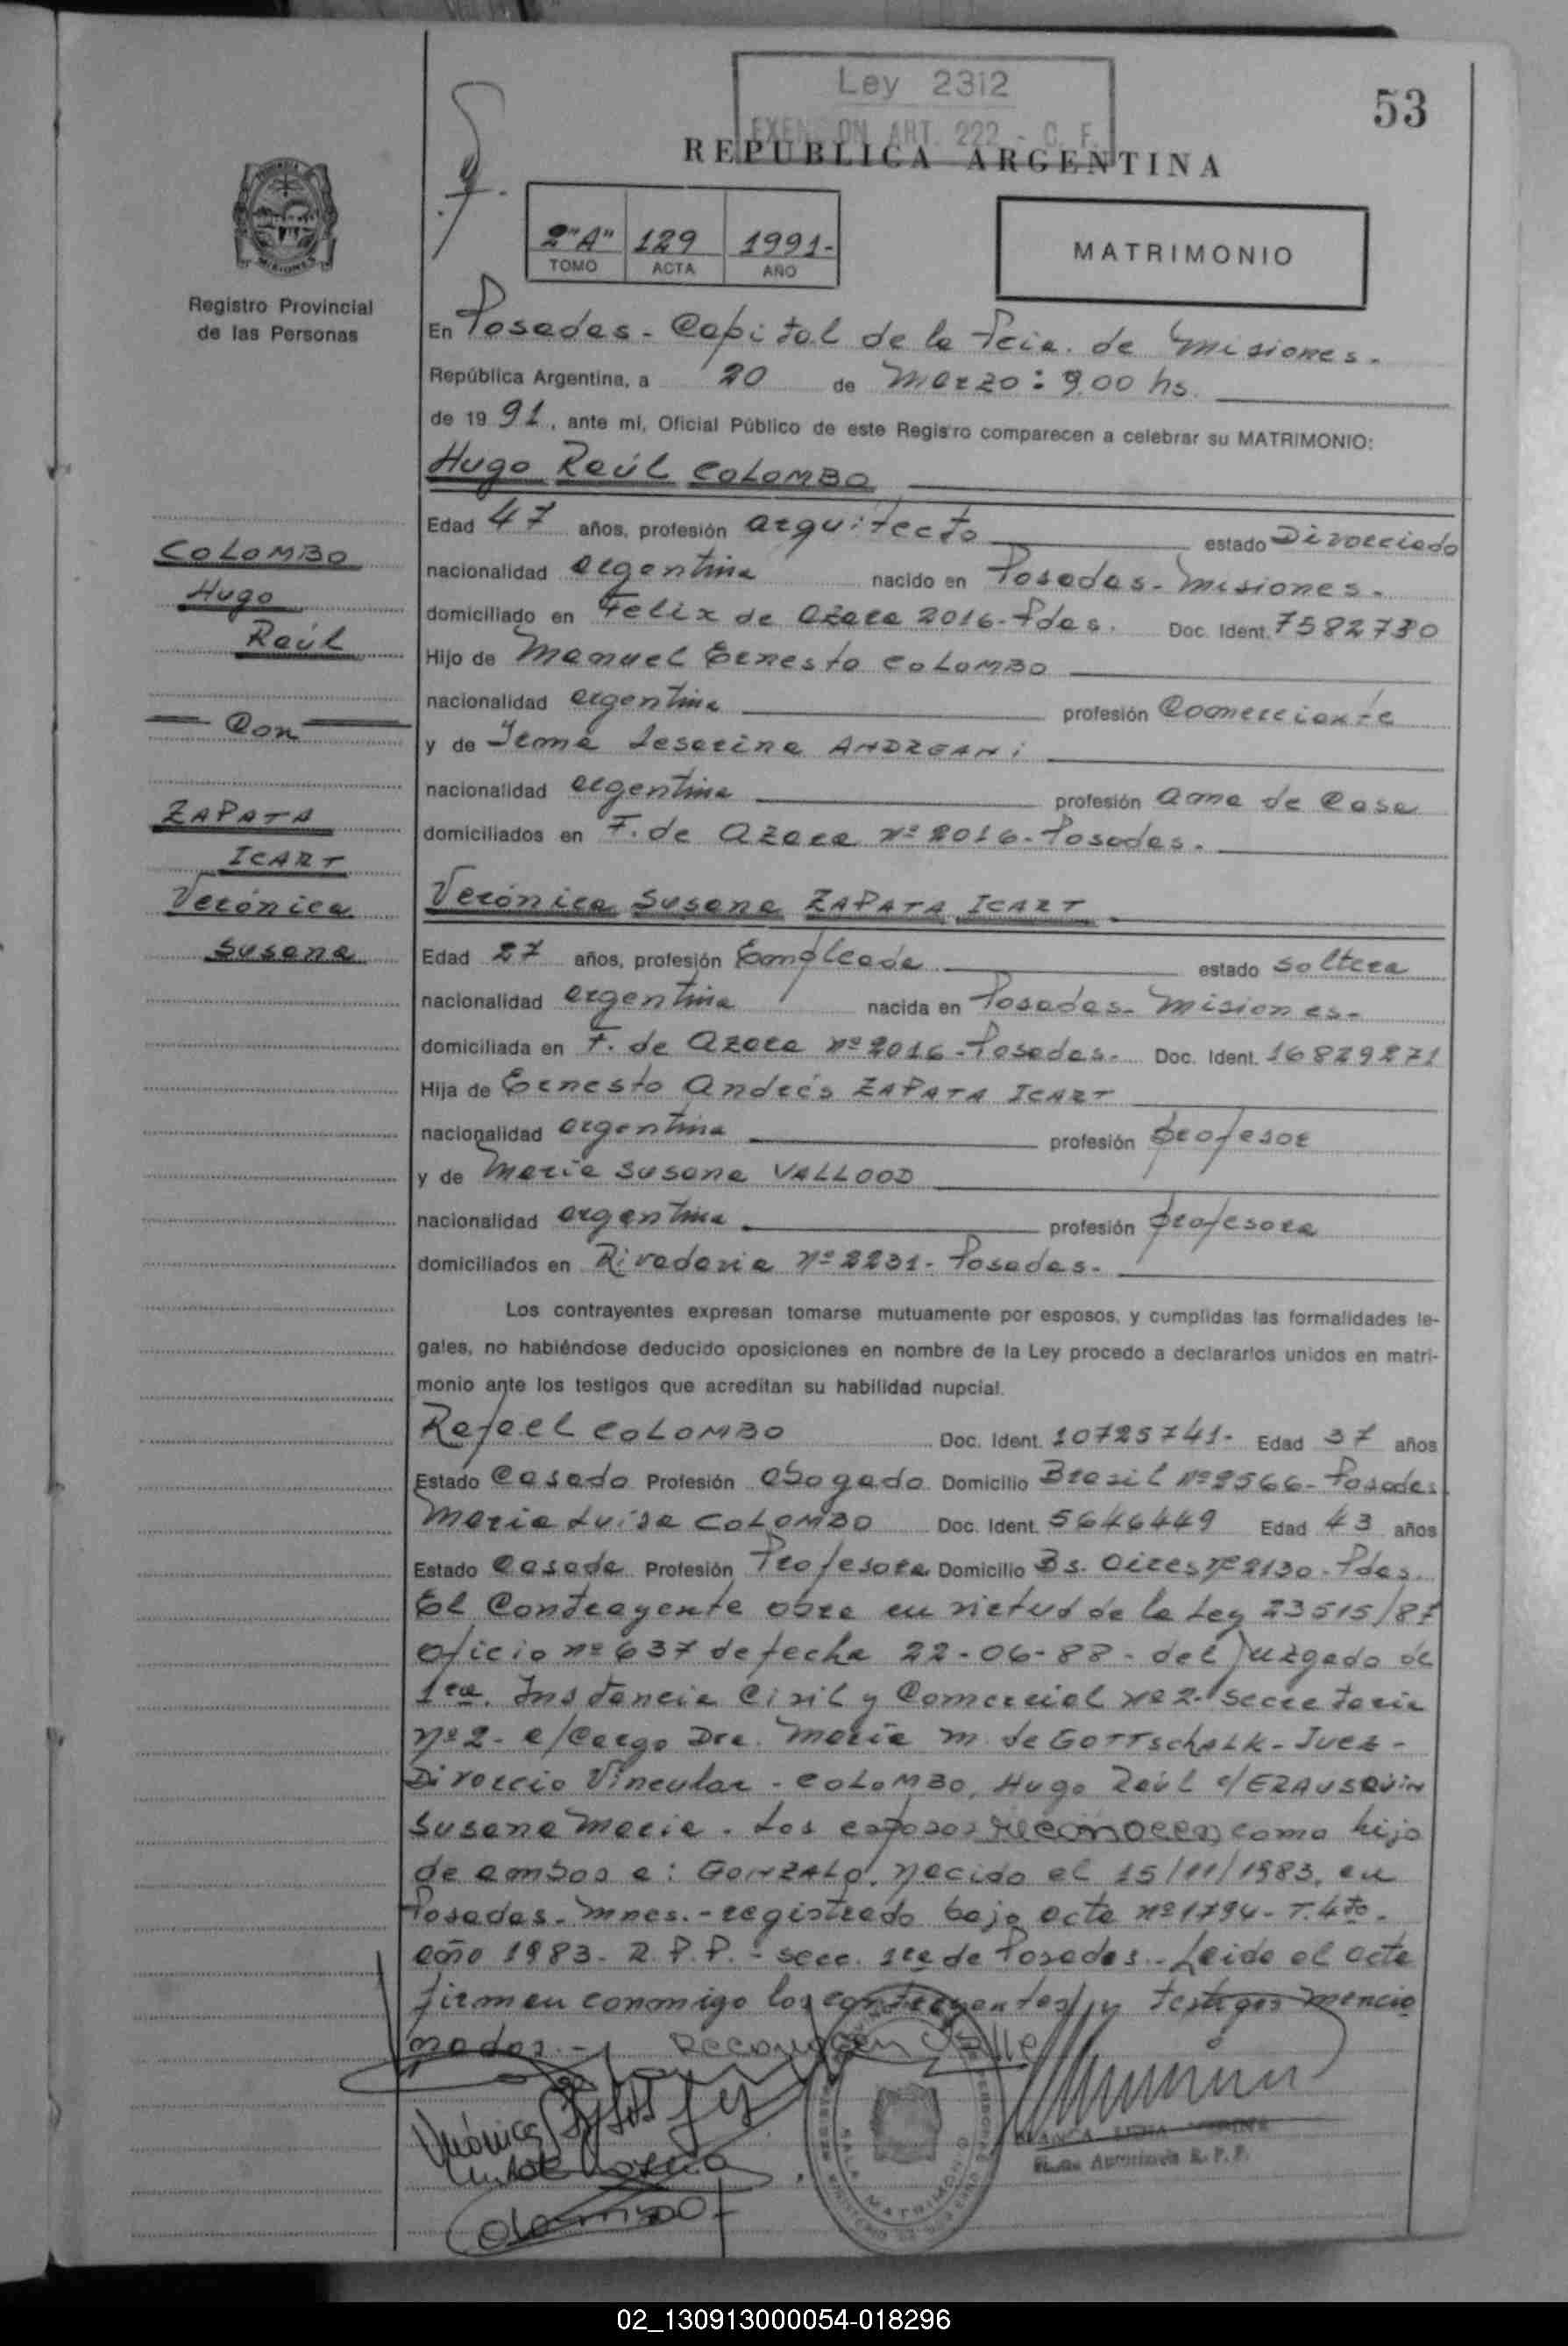 Ley 2312
EXENSION ART. 222 - C. F.
53
REPUBLICA ARGENTINA
2"A" 129 1991-
TOMO ACTA AÑO
MATRIMONIO
Registro Provincial
de las Personas
En Posadas - Capital de la Pcia. de Misiones.
República Argentina, a 20 de Marzo: 9.00 hs.
de 19 91, ante mí, Oficial Público de este Registro comparecen a celebrar su MATRIMONIO:
Hugo Raúl COLOMBO
COLOMBO
Hugo
Raúl
Con
ZAPATA
ICART
Verónica
Susana
Edad 47 años, profesión arquitecto estado Divorciado
nacionalidad argentina nacido en Posadas - Misiones.
domiciliado en Felix de Azara 2016 - Pdas. Doc. Ident. 7582730
Hijo de Manuel Ernesto COLOMBO
nacionalidad argentina profesión Comerciante
y de Irma ANDREANI
nacionalidad argentina profesión ama de Casa
domiciliados en F. de Azara nº 2016 - Posadas.
Verónica Susana ZAPATA ICART
Edad 27 años, profesión Empleada estado soltera
nacionalidad argentina nacida en Posadas - Misiones -
domiciliada en F. de Azara nº 2016 - Posadas - Doc. Ident. 16829271
Hija de Ernesto Andrés ZAPATA ICART
nacionalidad argentina profesión profesor
y de María Susana VALLOOD
nacionalidad argentina profesión profesora
domiciliados en Rivadavia nº 2231 - Posadas -
Los contrayentes expresan tomarse mutuamente por esposos, y cumplidas las formalidades le-
gales, no habiéndose deducido oposiciones en nombre de la Ley procedo a declararlos unidos en matri-
monio ante los testigos que acreditan su habilidad nupcial.
Rafael COLOMBO Doc. Ident. 10725741 - Edad 37 años
Estado Casado Profesión abogado Domicilio Brasil nº 2566 - Posadas
María Luisa COLOMBO Doc. Ident. 5646449 Edad 43 años
Estado Casada Profesión Profesora Domicilio Bs. Aires nº 2130 - Pdas.
El Contrayente obra en virtud de la Ley 23515/87
oficio nº 637 de fecha 22-06-88 - del Juzgado de
1ra. Instancia Civil y Comercial nº 2 - Secretaria
nº 2 - a/Cargo Dra. María M. de GOTTSCHALK - Juez -
Divorcio Vincular - COLOMBO, Hugo Raúl c/ ERAUSQUIN
Susana María. Los esposos reconocen como hijo
de ambos a: GONZALO. nacido el 15/11/1983, en
Posadas - Mnes. - registrado bajo acta nº 1794 - T. 4to -
año 1983 - R.P.P. - secc. 1ra de Posadas. - Leida el acta
firman conmigo los contrayentes y testigos mencio
nados. - Reconocen Valle
Verónica
Colombo
SALA MATRIMONIO
BLANCA
Autorizada R. P. P.
02_130913000054-018296